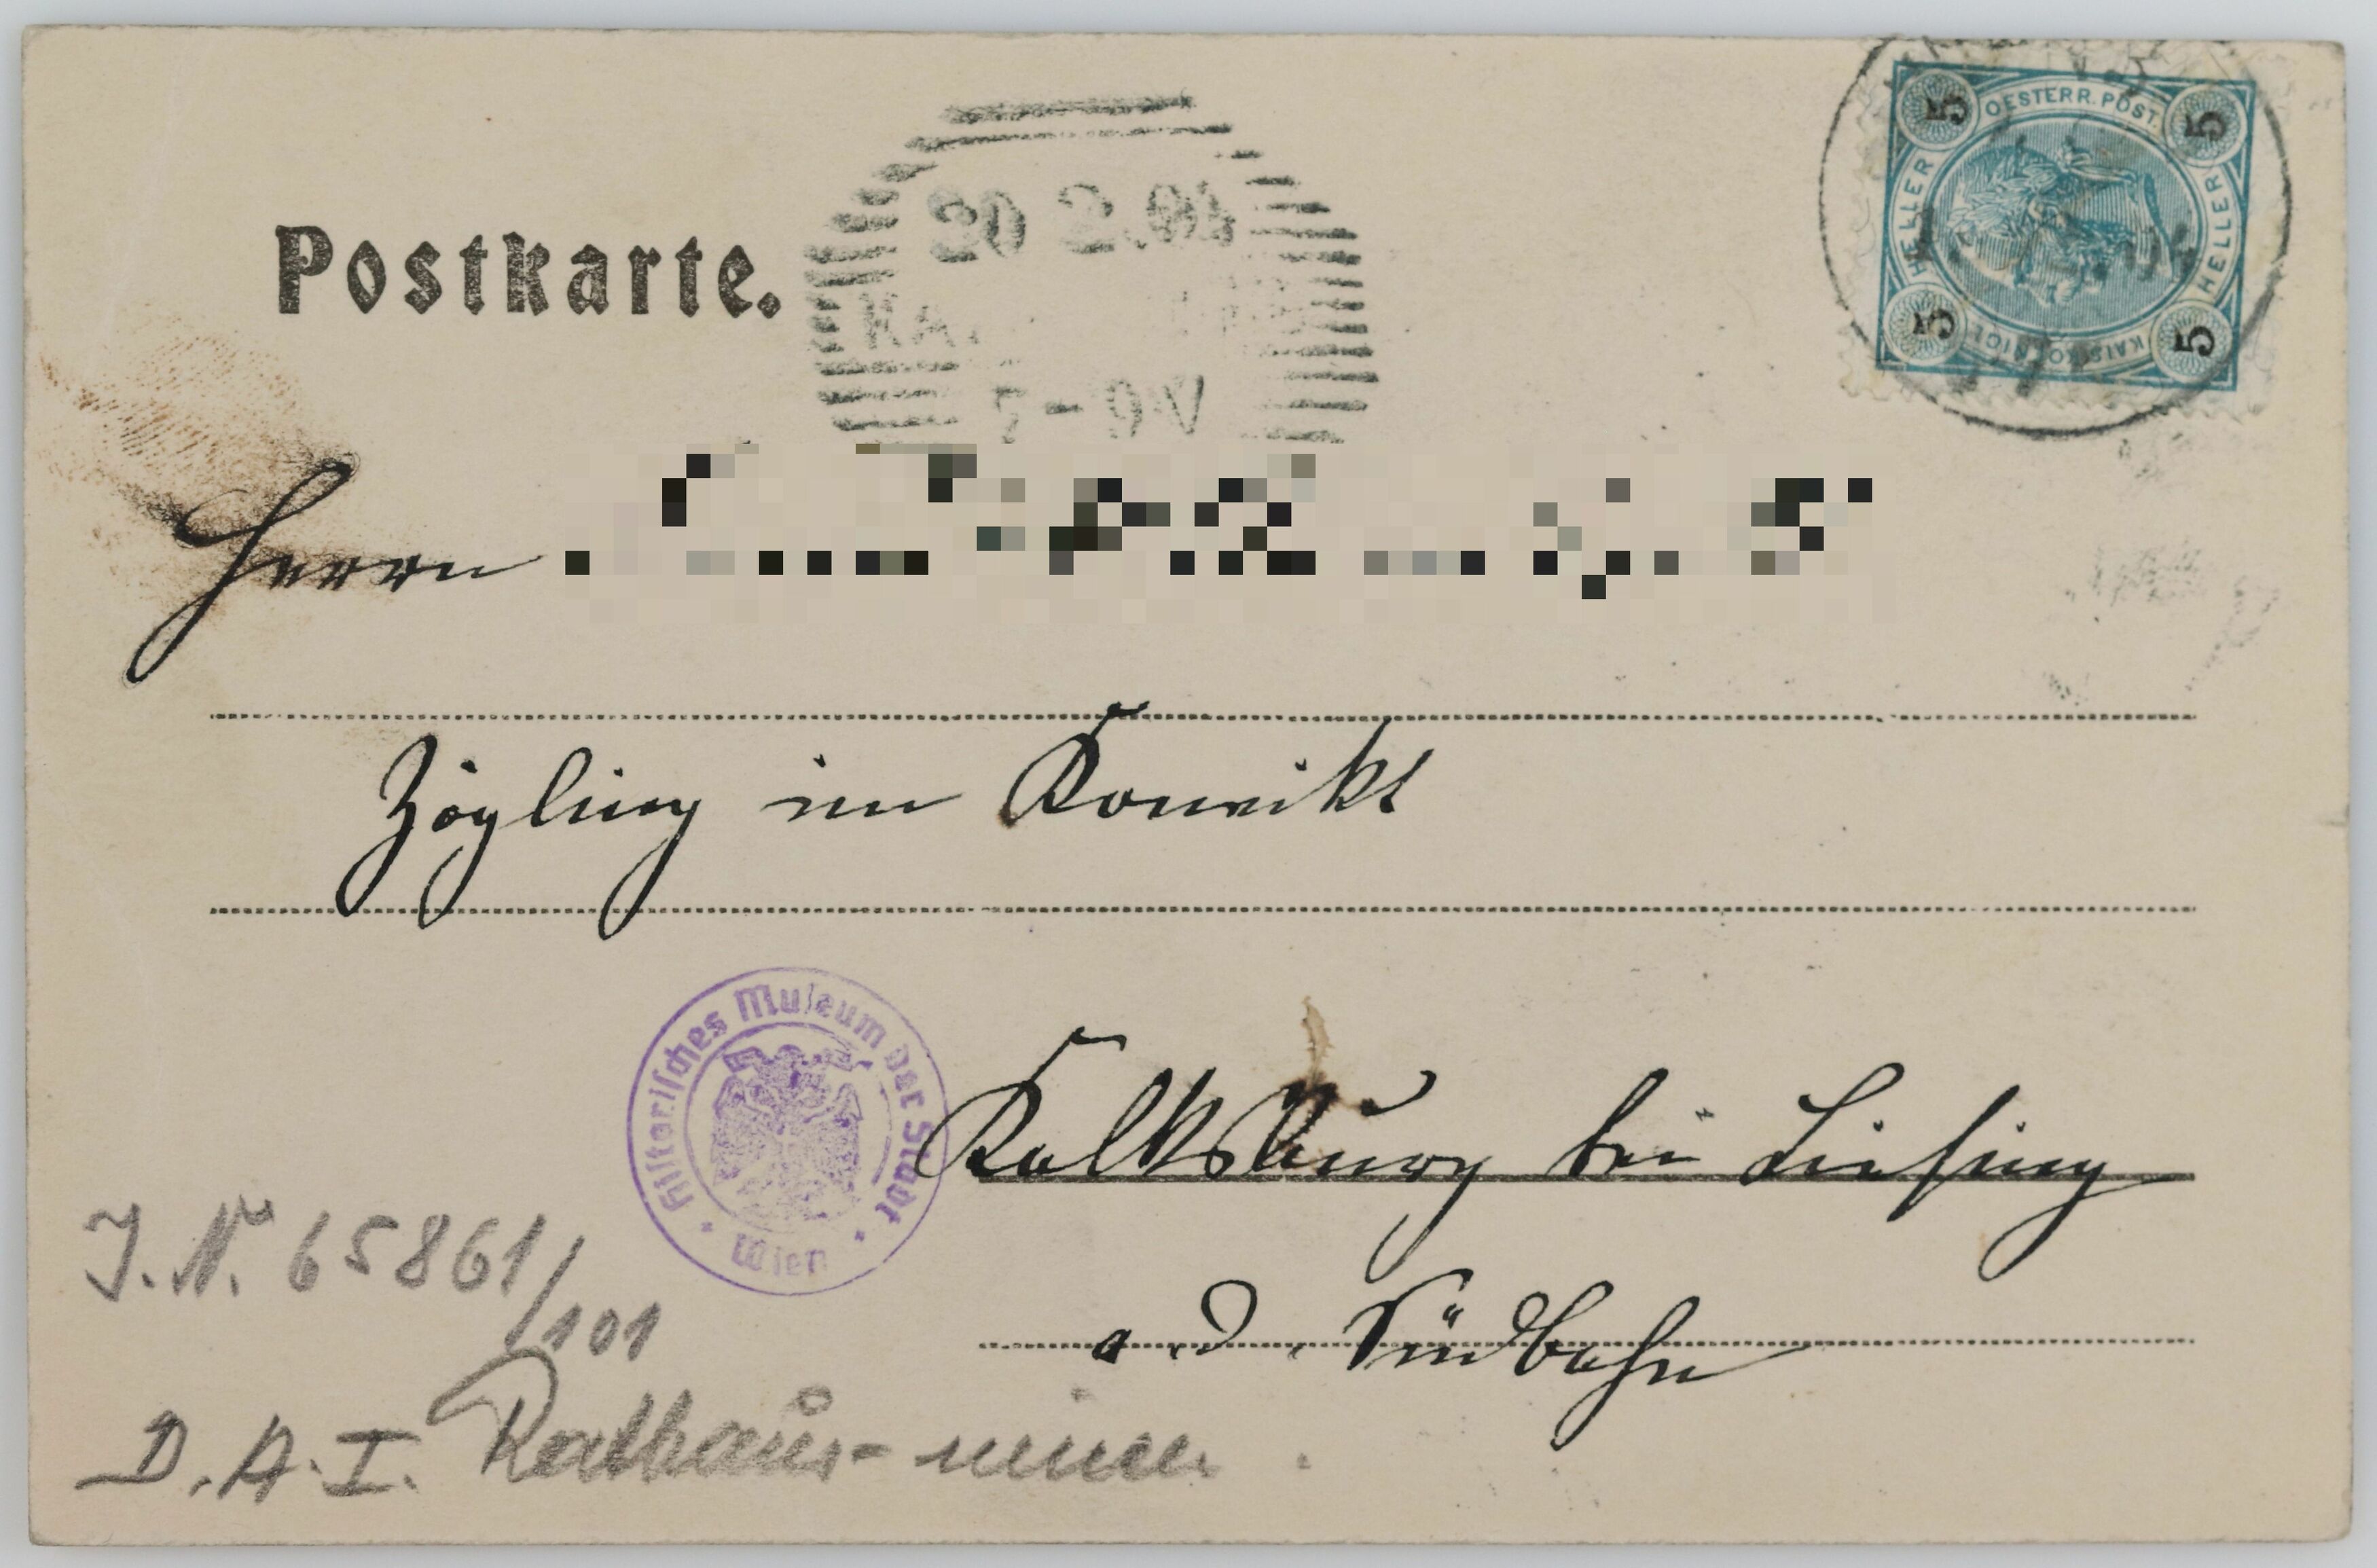 OESTERR. POST.
HELLER
HELLER
5 5 5 5
20 2.04
Postkarte.
Herrn
Zögling im Konvikt
Historisches Museum der Stadt
Wien
Kalksburg bei Liesing
a d. Südbahn
J. N. 65861/101
D. A. I. Rathaus-